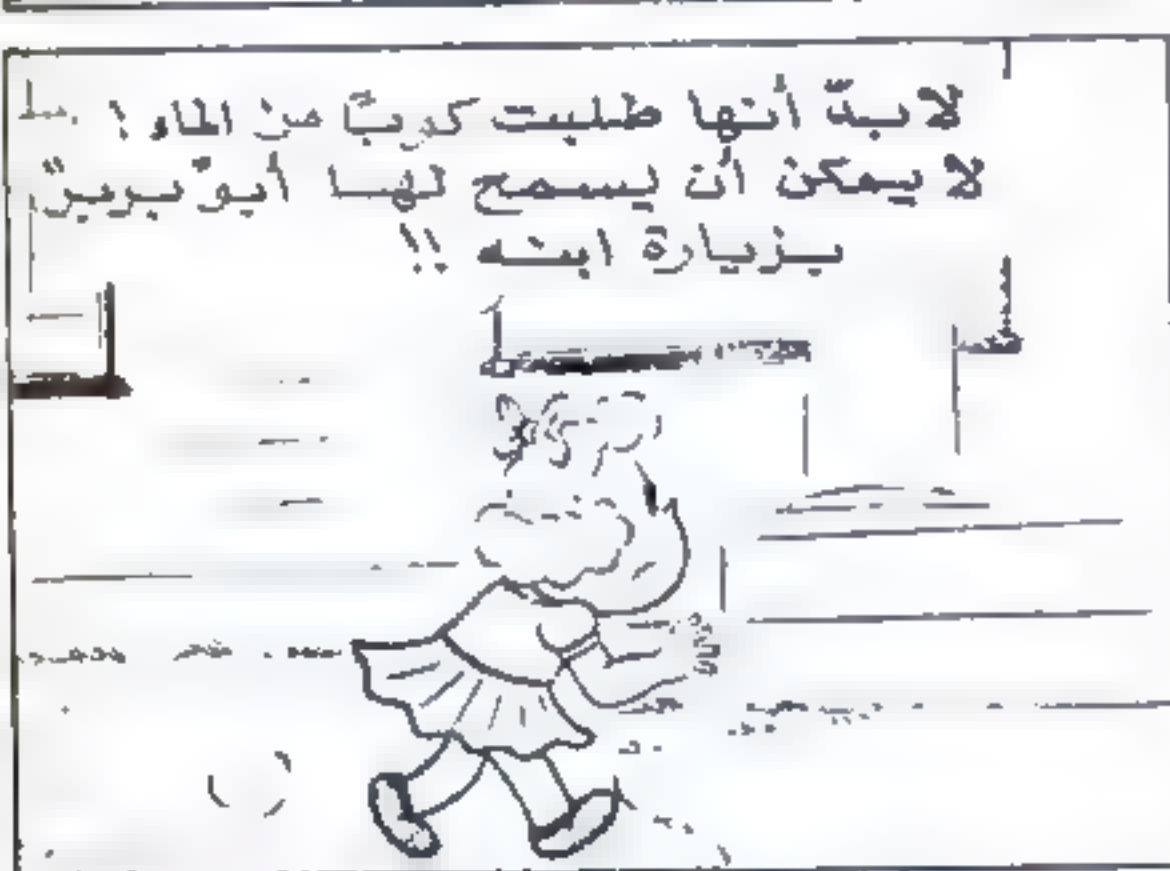 لابدّ أنها طلبت كوبًا من الماء !
لا يمكن أن يسمح لها أبو بريز
بزيارة ابنه !!